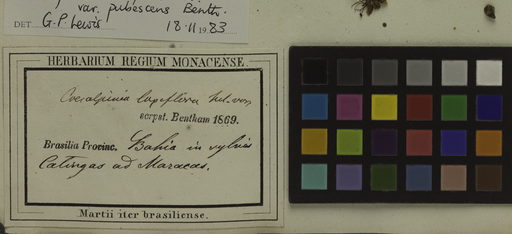 var. pubescens Benth.
DET. G. P. Lewis 18·11 1983
HERBARIUM REGIUM MONACENSE.
laxiflora Tul. var
scrpst. Bentham 1869.
Brasilia Provinc. Bahia in sylvis
Catingas ad Maracas.
Martii iter brasiliense.